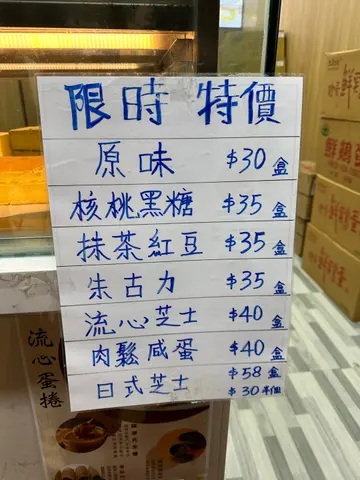 限時 特價
原味 $30盒
核桃黑糖 $35盒
抹茶紅豆 $35盒
朱古力 $35盒
流心芝士 $40盒
肉鬆咸蛋 $40盒
日式芝士 $58盒
$30半個
流心蛋捲
鮮雞蛋